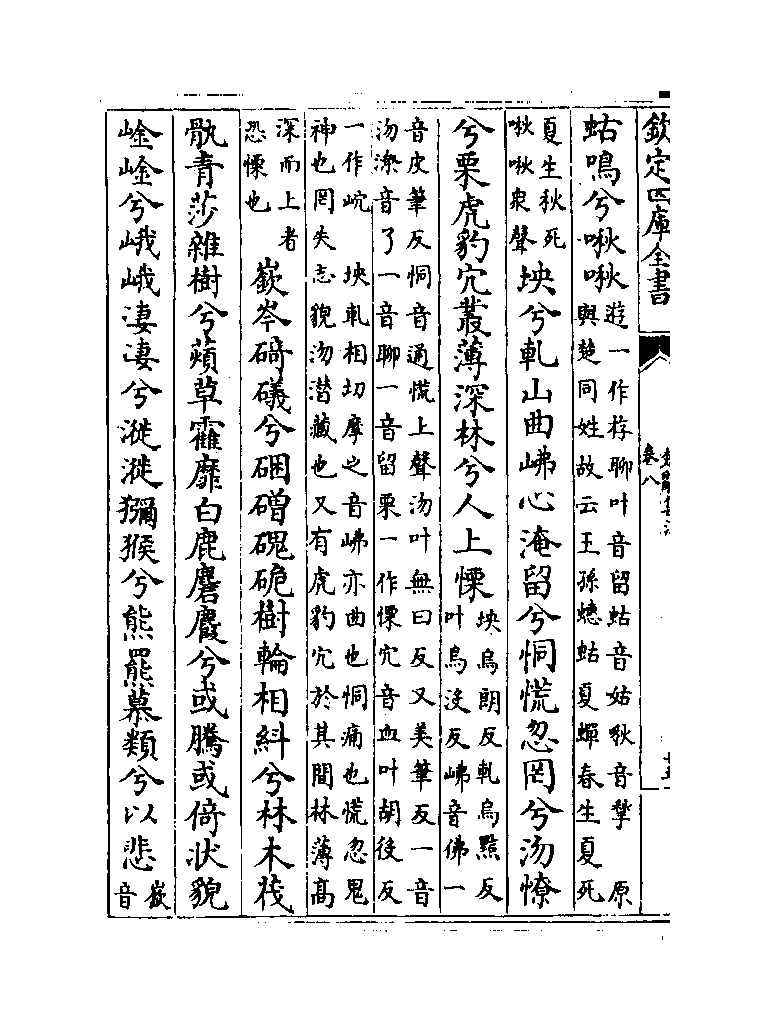 欽定四庫全書
卷八
蛄鳴兮啾啾
遊一作存聊叶音留蛄音姑啾音揫　原
與楚同姓故云王孫蟪蛄夏蟬春生夏死
夏生秋死
啾啾衆聲
坱兮軋山曲岪心淹留兮恫慌忽罔兮沕憭
兮栗虎豹穴叢薄深林兮人上慄
坱烏朗反軋烏黠反
叶烏没反岪音佛一
音皮筆反恫音通慌上聲沕叶無曰反又美筆反一音
沕潦音了一音聊一音留栗一作慄穴音血叶胡役反
一作岤　坱軋相切摩之音岪亦曲也恫痛也慌忽鬼
神也罔失志貌沕潛藏也又有虎豹穴於其間林薄髙
深而上者
恐慄也
嶔岑碕礒兮硱磳磈硊樹輪相糾兮林木茷
骫青莎雜樹兮薠草靃靡白鹿麏麚兮或騰或倚狀貌
崟崟兮峨峨淒淒兮漇漇獼猴兮熊羆慕類兮以悲
嶔
音